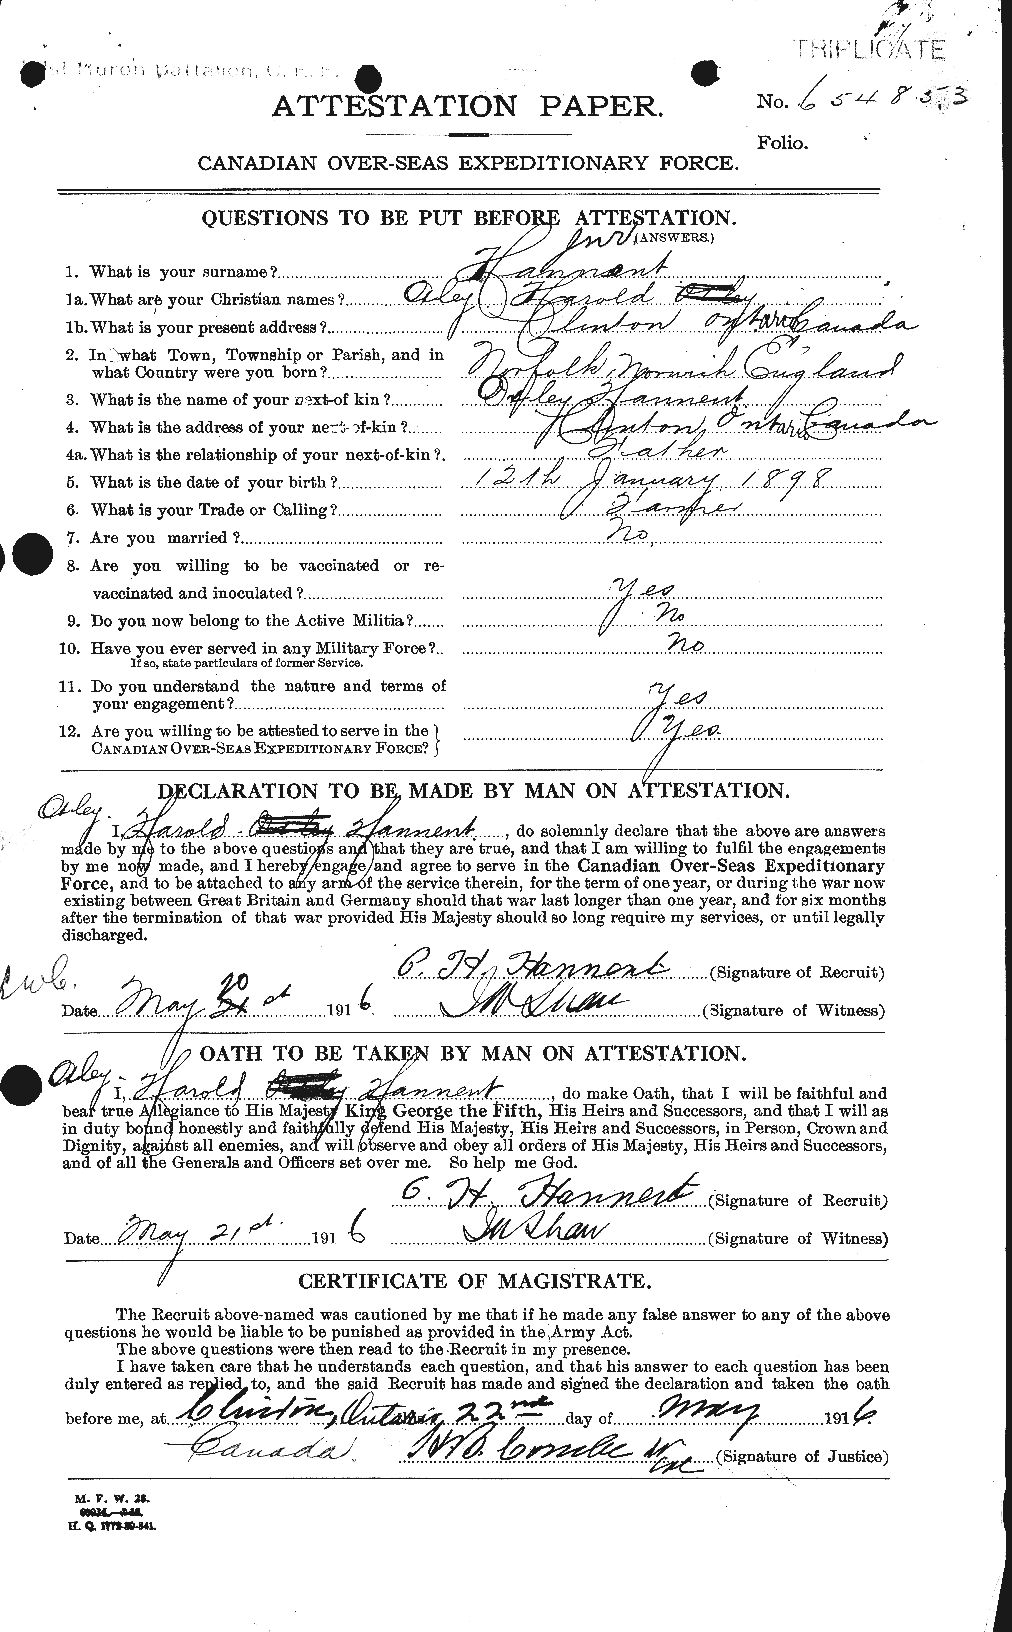 TRIPLICATE
Huron Battalion, C. E. F.
ATTESTATION PAPER.
No. 654853
Folio.
CANADIAN OVER-SEAS EXPEDITIONARY FORCE.
QUESTIONS TO BE PUT BEFORE ATTESTATION.
(ANSWERS.)
1. What is your surname? Hannent
1a. What are your Christian names? Harold
1b. What is your present address? Clinton Ontario Canada
2. In what Town, Township or Parish, and in
what Country were you born? Norfolk, Norwich England
3. What is the name of your next-of kin? Hannent
4. What is the address of your next-of-kin? Clinton, Ontario Canada
4a. What is the relationship of your next-of-kin? Father
5. What is the date of your birth? 12th January 1898
6. What is your Trade or Calling? Farmer
7. Are you married? No,
8. Are you willing to be vaccinated or re-
vaccinated and inoculated? Yes
9. Do you now belong to the Active Militia? No
10. Have you ever served in any Military Force? No
If so, state particulars of former Service.
11. Do you understand the nature and terms of
your engagement? Yes
12. Are you willing to be attested to serve in the
CANADIAN OVER-SEAS EXPEDITIONARY FORCE? Yes
DECLARATION TO BE MADE BY MAN ON ATTESTATION.
I, Harold Hannent, do solemnly declare that the above are answers
made by me to the above questions and that they are true, and that I am willing to fulfil the engagements
by me now made, and I hereby engage and agree to serve in the Canadian Over-Seas Expeditionary
Force, and to be attached to any arm of the service therein, for the term of one year, or during the war now
existing between Great Britain and Germany should that war last longer than one year, and for six months
after the termination of that war provided His Majesty should so long require my services, or until legally
discharged.
H. Hannent (Signature of Recruit)
Date May 1916 (Signature of Witness)
OATH TO BE TAKEN BY MAN ON ATTESTATION.
I, Harold Hannent, do make Oath, that I will be faithful and
bear true Allegiance to His Majesty King George the Fifth, His Heirs and Successors, and that I will as
in duty bound honestly and faithfully defend His Majesty, His Heirs and Successors, in Person, Crown and
Dignity, against all enemies, and will observe and obey all orders of His Majesty, His Heirs and Successors,
and of all the Generals and Officers set over me. So help me God.
H. Hannent (Signature of Recruit)
Date May 21st 1916 Shaw (Signature of Witness)
CERTIFICATE OF MAGISTRATE.
The Recruit above-named was cautioned by me that if he made any false answer to any of the above
questions he would be liable to be punished as provided in the Army Act.
The above questions were then read to the Recruit in my presence.
I have taken care that he understands each question, and that his answer to each question has been
duly entered as replied to, and the said Recruit has made and signed the declaration and taken the oath
before me, at Clinton, Ontario, 22nd day of May 1916.
Canada. (Signature of Justice)
M. F. W. 23.
H. Q. 1772-39-841.